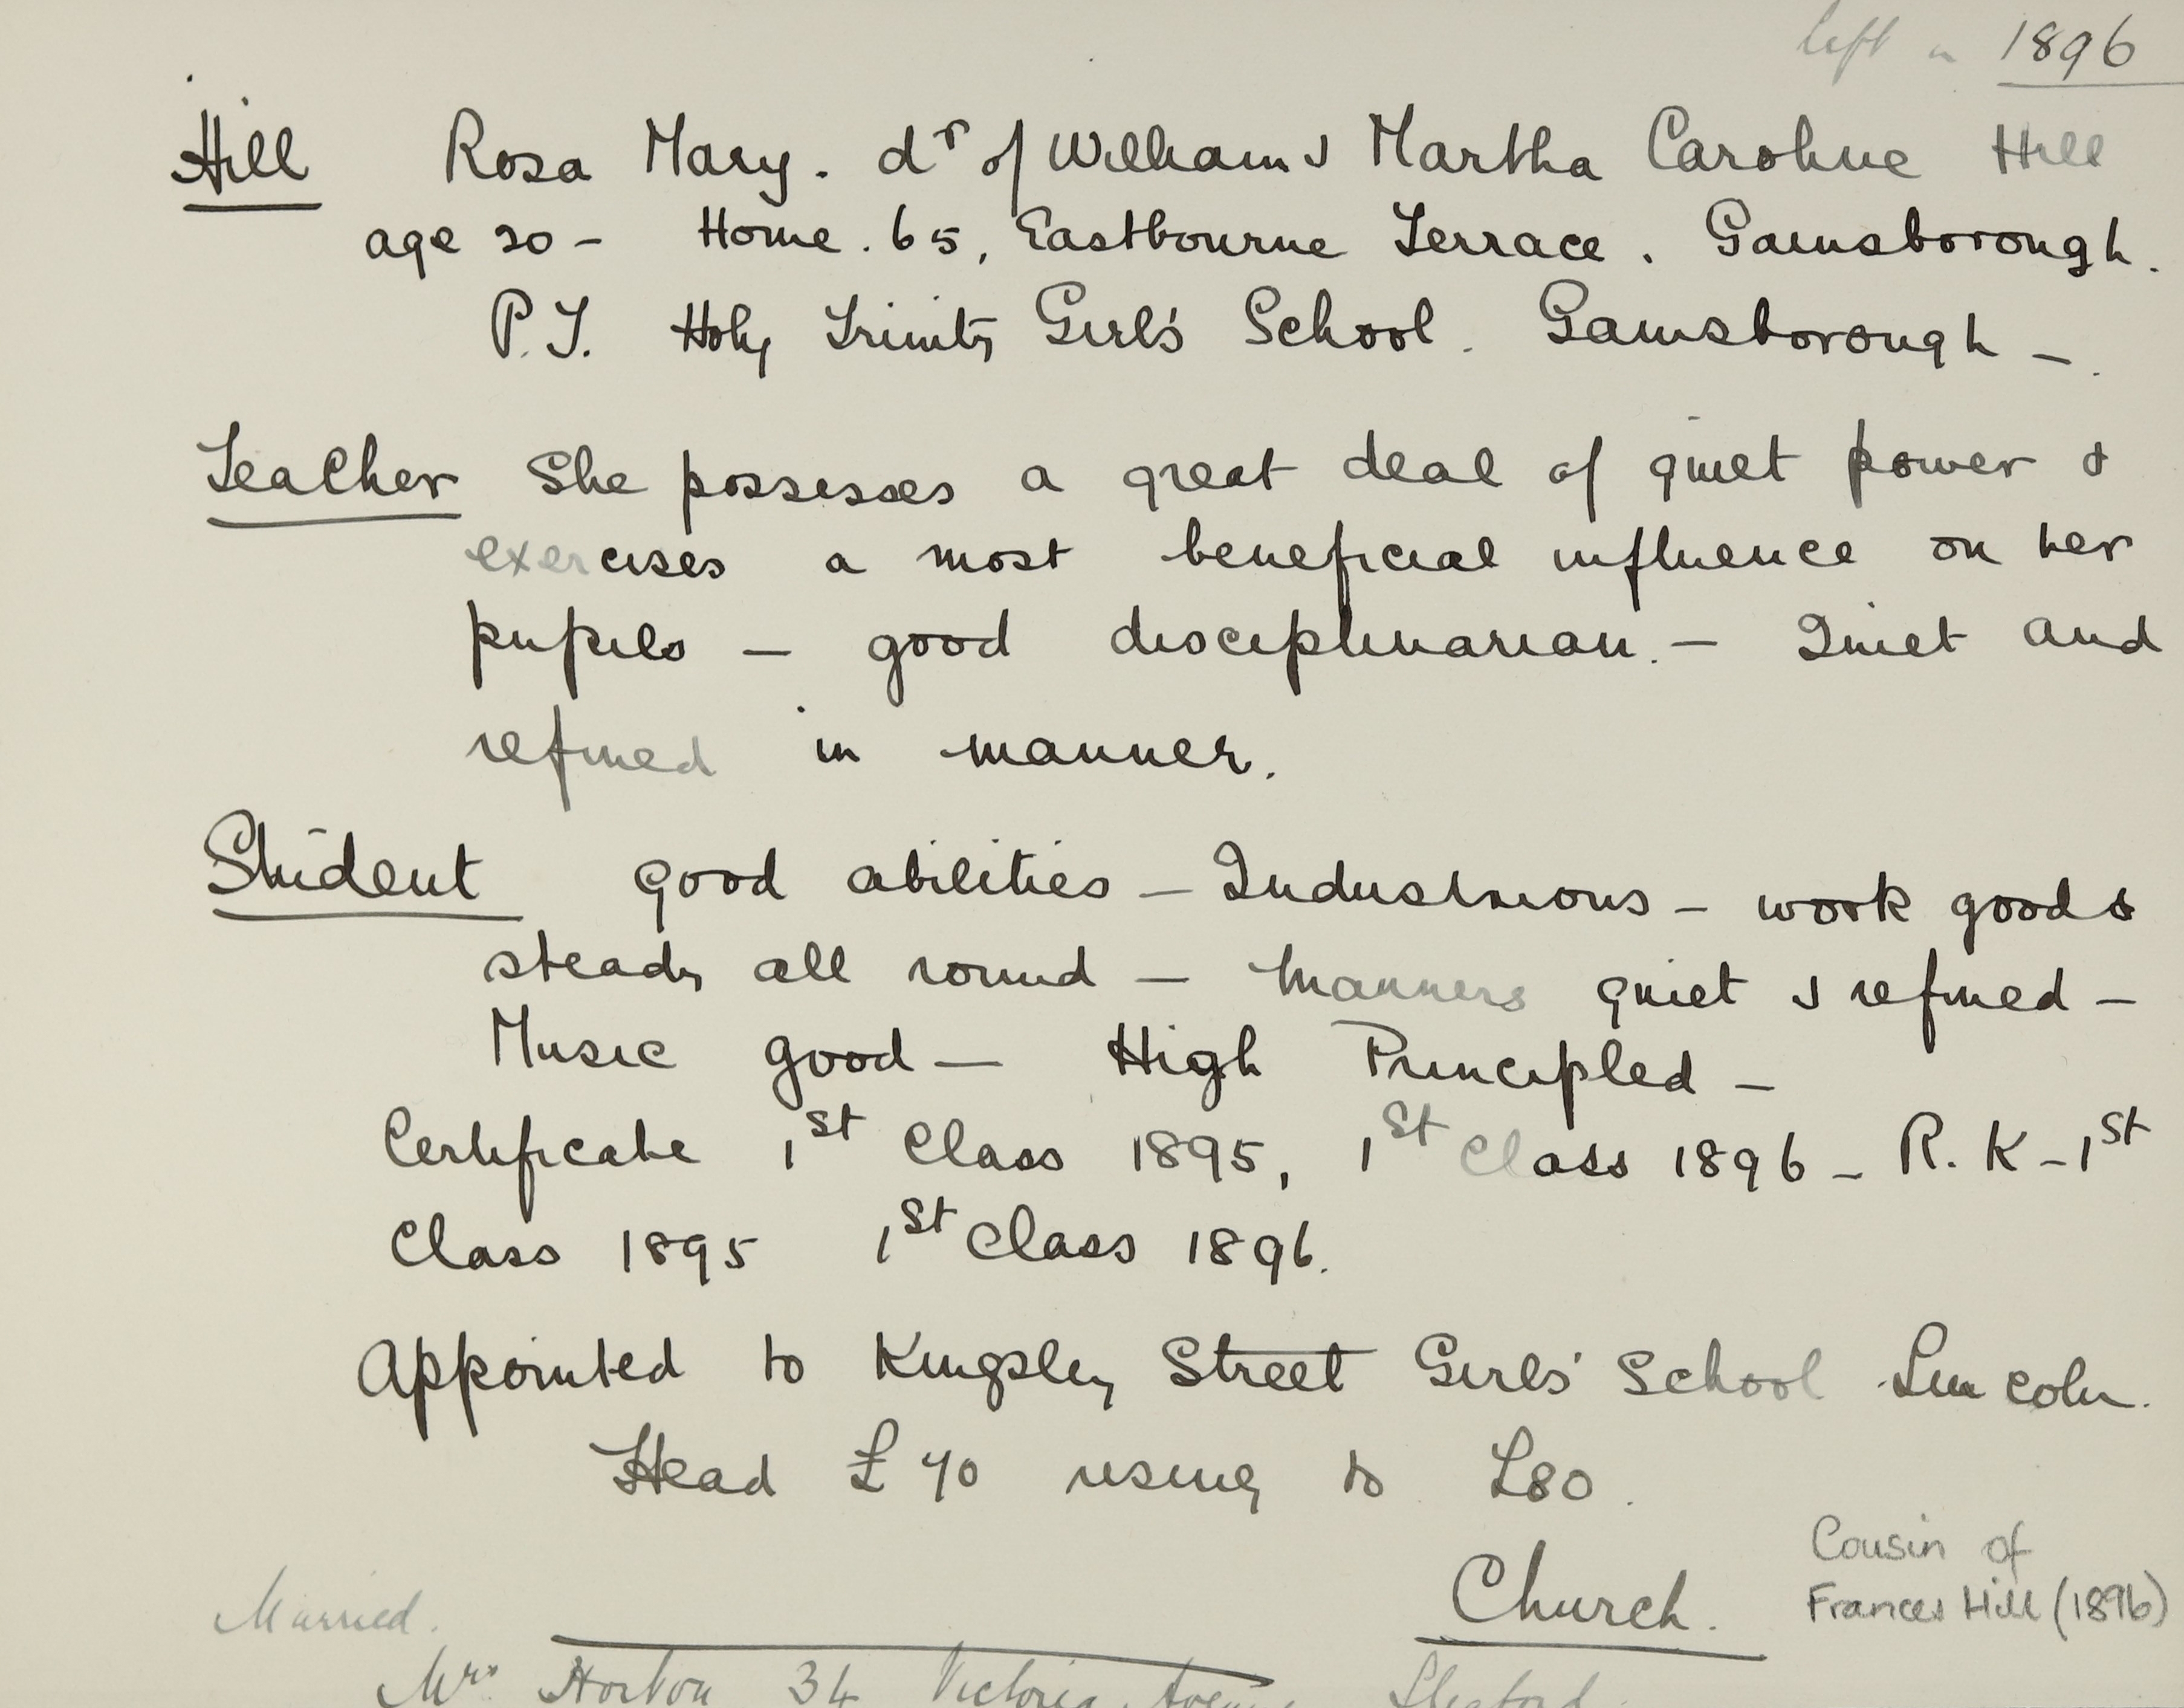 left in 1896
Hill Rosa Mary. dr of William & Martha Caroline Hill
age 20 - Home. 65, Eastbourne Terrace. Gainsborough.
P.T. Holy Trinity Girls' School. Gainsborough -
Teacher She possesses a great deal of quiet power &
exercises a most beneficial influence on her
pupils - good disciplinarian. - Quiet and
refined in manner.
Student good abilities - Industrious - work good &
steady all round - Manners quiet & refined -
Music good - High Principled -
Certificate 1st Class 1895, 1st Class 1896 - R. K - 1st
Class 1895 1st Class 1896.
Appointed to Kingsley Street Girls' School Lincoln.
Head £70 rising to £80.
Church.
Cousin of
Frances Hill (1896)
Married.
Mrs Horton 34 Victoria Avenue Sleaford.